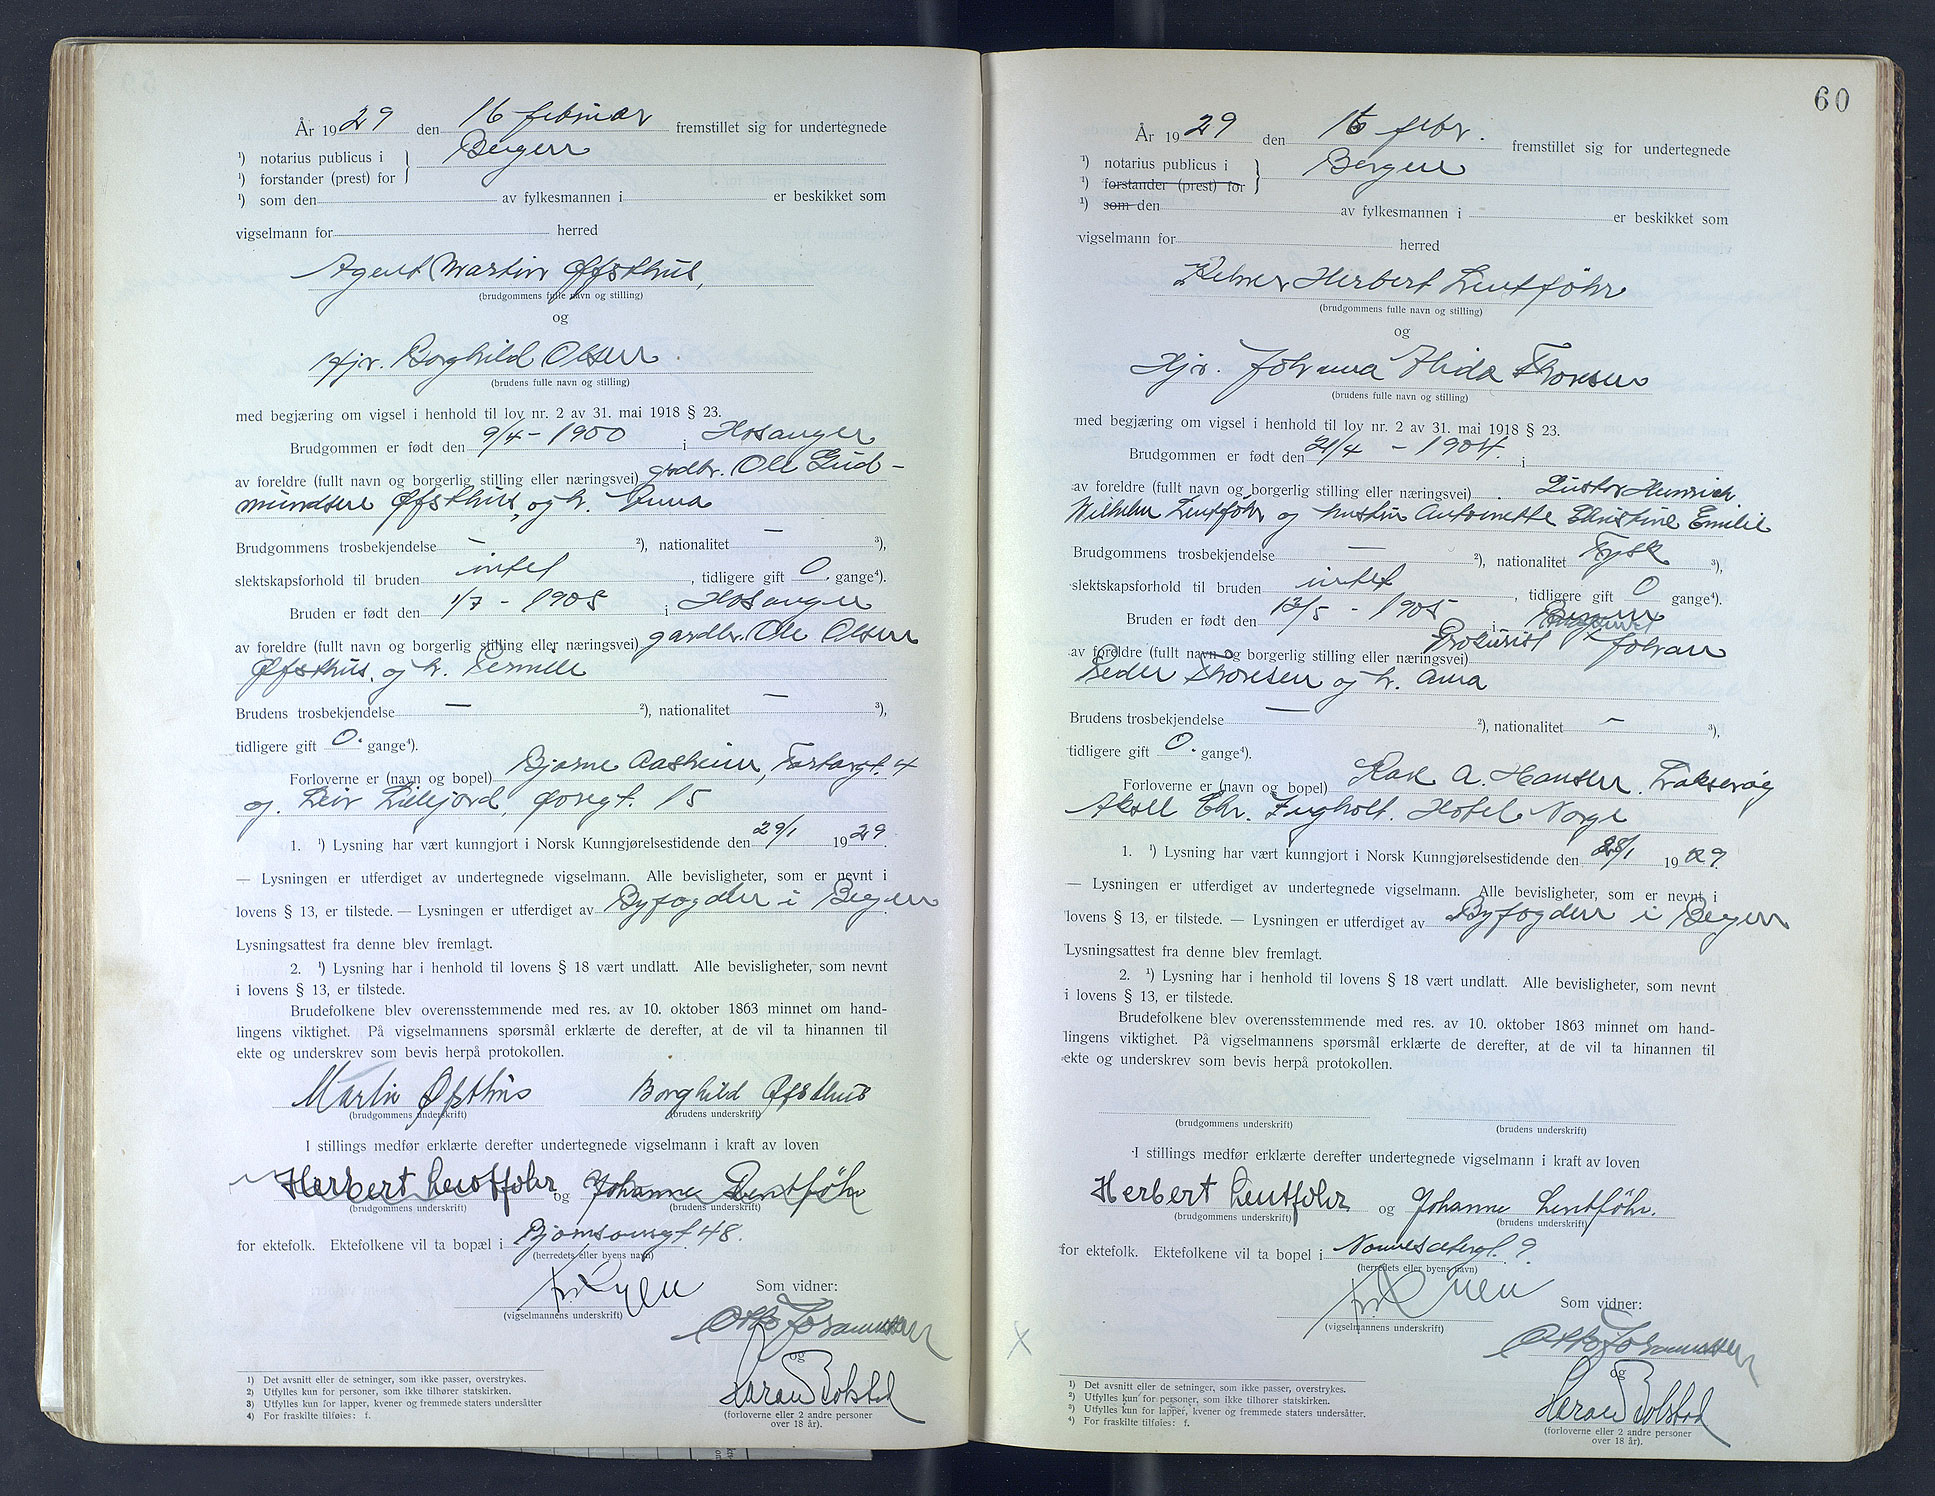 År 1929 den 16 februar fremstillet sig for undertegnede
¹) notarius publicus i Bergen
¹) forstander (prest) for
¹) som den av fylkesmannen i er beskikket som
vigselmann for herred
Agent Martin Øfsthus,
(brudgommens fulle navn og stilling)
og
Hjv. Borghild Olsen.
(brudens fulle navn og stilling)
med begjæring om vigsel i henhold til lov nr. 2 av 31. mai 1918 § 23.
Brudgommen er født den 9/4 - 1900 i Hosanger
av foreldre (fullt navn og borgerlig stilling eller næringsvei) grdbr. Ole Gud-
mundsen Øfsthus, og h. Anna
Brudgommens trosbekjendelse — ²), nationalitet — ³),
slektskapsforhold til bruden intet, tidligere gift 0 gange⁴).
Bruden er født den 1/7 - 1905 i Hosanger
av foreldre (fullt navn og borgerlig stilling eller næringsvei) gardbr. Ole Olsen
Øfsthus, og h. Pernille
Brudens trosbekjendelse — ²), nationalitet — ³),
tidligere gift 0. gange⁴).
Forloverne er (navn og bopel) Bjarne Aasheim, 4
og Leif Lillejord, Øvregt. 15
1. ¹) Lysning har vært kunngjort i Norsk Kunngjørelsestidende den 29/1 1929.
— Lysningen er utferdiget av undertegnede vigselmann. Alle bevisligheter, som er nevnt i
lovens § 13, er tilstede. — Lysningen er utferdiget av Byfogden i Bergen
Lysningsattest fra denne blev fremlagt.
2. ¹) Lysning har i henhold til lovens § 18 vært undlatt. Alle bevisligheter, som nevnt
i lovens § 13, er tilstede.
Brudefolkene blev overensstemmende med res. av 10. oktober 1863 minnet om hand-
lingens viktighet. På vigselmannens spørsmål erklærte de derefter, at de vil ta hinannen til
ekte og underskrev som bevis herpå protokollen.
Martin Øfsthus Borghild Øfsthus
(brudgommens underskrift) (brudens underskrift)
I stillings medfør erklærte derefter undertegnede vigselmann i kraft av loven
Herbert Lentföhr og Johanne Lentföhr
(brudgommens underskrift) (brudens underskrift)
for ektefolk. Ektefolkene vil ta bopæl i Bjørnsonsgt 48.
(herredets eller byens navn)
Som vidner:
(vigselmannens underskrift)
Otto Johannessen
og
Haran Bolstad
(forloverne eller 2 andre personer
over 18 år).
1) Det avsnitt eller de setninger, som ikke passer, overstrykes.
2) Utfylles kun for personer, som ikke tilhører statskirken.
3) Utfylles kun for lapper, kvener og fremmede staters undersåtter
4) For fraskilte tilføies: f.
60
År 1929 den 16 febr. fremstillet sig for undertegnede
¹) notarius publicus i Bergen
¹) forstander (prest) for
¹) som den av fylkesmannen i er beskikket som
vigselmann for herred
Kelner Herbert Lentföhr
(brudgommens fulle navn og stilling)
og
Hjv. Johanna Alida Thoresen
(brudens fulle navn og stilling)
med begjæring om vigsel i henhold til lov nr. 2 av 31. mai 1918 § 23.
Brudgommen er født den 21/4 - 1904. i
av foreldre (fullt navn og borgerlig stilling eller næringsvei) Gustav Heinrich
Wilhelm Lentföhr og hustru Antoinette Christine Emilie
Brudgommens trosbekjendelse — ²), nationalitet Tysk ³),
slektskapsforhold til bruden intet, tidligere gift 0 gange⁴).
Bruden er født den 12/5 - 1905 i Bergen
av foreldre (fullt navn og borgerlig stilling eller næringsvei) Prokurist Johan
Peder Thoresen og h. Anna
Brudens trosbekjendelse — ²), nationalitet — ³),
tidligere gift 0. gange⁴).
Forloverne er (navn og bopel) Karl A. Hansen,
Aksel Chr. Hotel Norge
1. ¹) Lysning har vært kunngjort i Norsk Kunngjørelsestidende den 28/1 1929.
— Lysningen er utferdiget av undertegnede vigselmann. Alle bevisligheter, som er nevnt i
lovens § 13, er tilstede. — Lysningen er utferdiget av Byfogden i Bergen
Lysningsattest fra denne blev fremlagt.
2. ¹) Lysning har i henhold til lovens § 18 vært undlatt. Alle bevisligheter, som nevnt
i lovens § 13, er tilstede.
Brudefolkene blev overensstemmende med res. av 10. oktober 1863 minnet om hand-
lingens viktighet. På vigselmannens spørsmål erklærte de derefter, at de vil ta hinannen til
ekte og underskrev som bevis herpå protokollen.
(brudgommens underskrift) (brudens underskrift)
I stillings medfør erklærte derefter undertegnede vigselmann i kraft av loven
Herbert Lentföhr og Johanne Lentföhr.
(brudgommens underskrift) (brudens underskrift)
for ektefolk. Ektefolkene vil ta bopel i Nonnesetergt. 9
(herredets eller byens navn)
Som vidner:
(vigselmannens underskrift)
Otto Johannessen
og
Haran Bolstad
(forloverne eller 2 andre personer
over 18 år).
¹) Det avsnitt eller de setninger, som ikke passer, overstrykes.
²) Utfylles kun for personer, som ikke tilhører statskirken.
³) Utfylles kun for lapper, kvener og fremmede staters undersåtter.
⁴) For fraskilte tilføies: f.